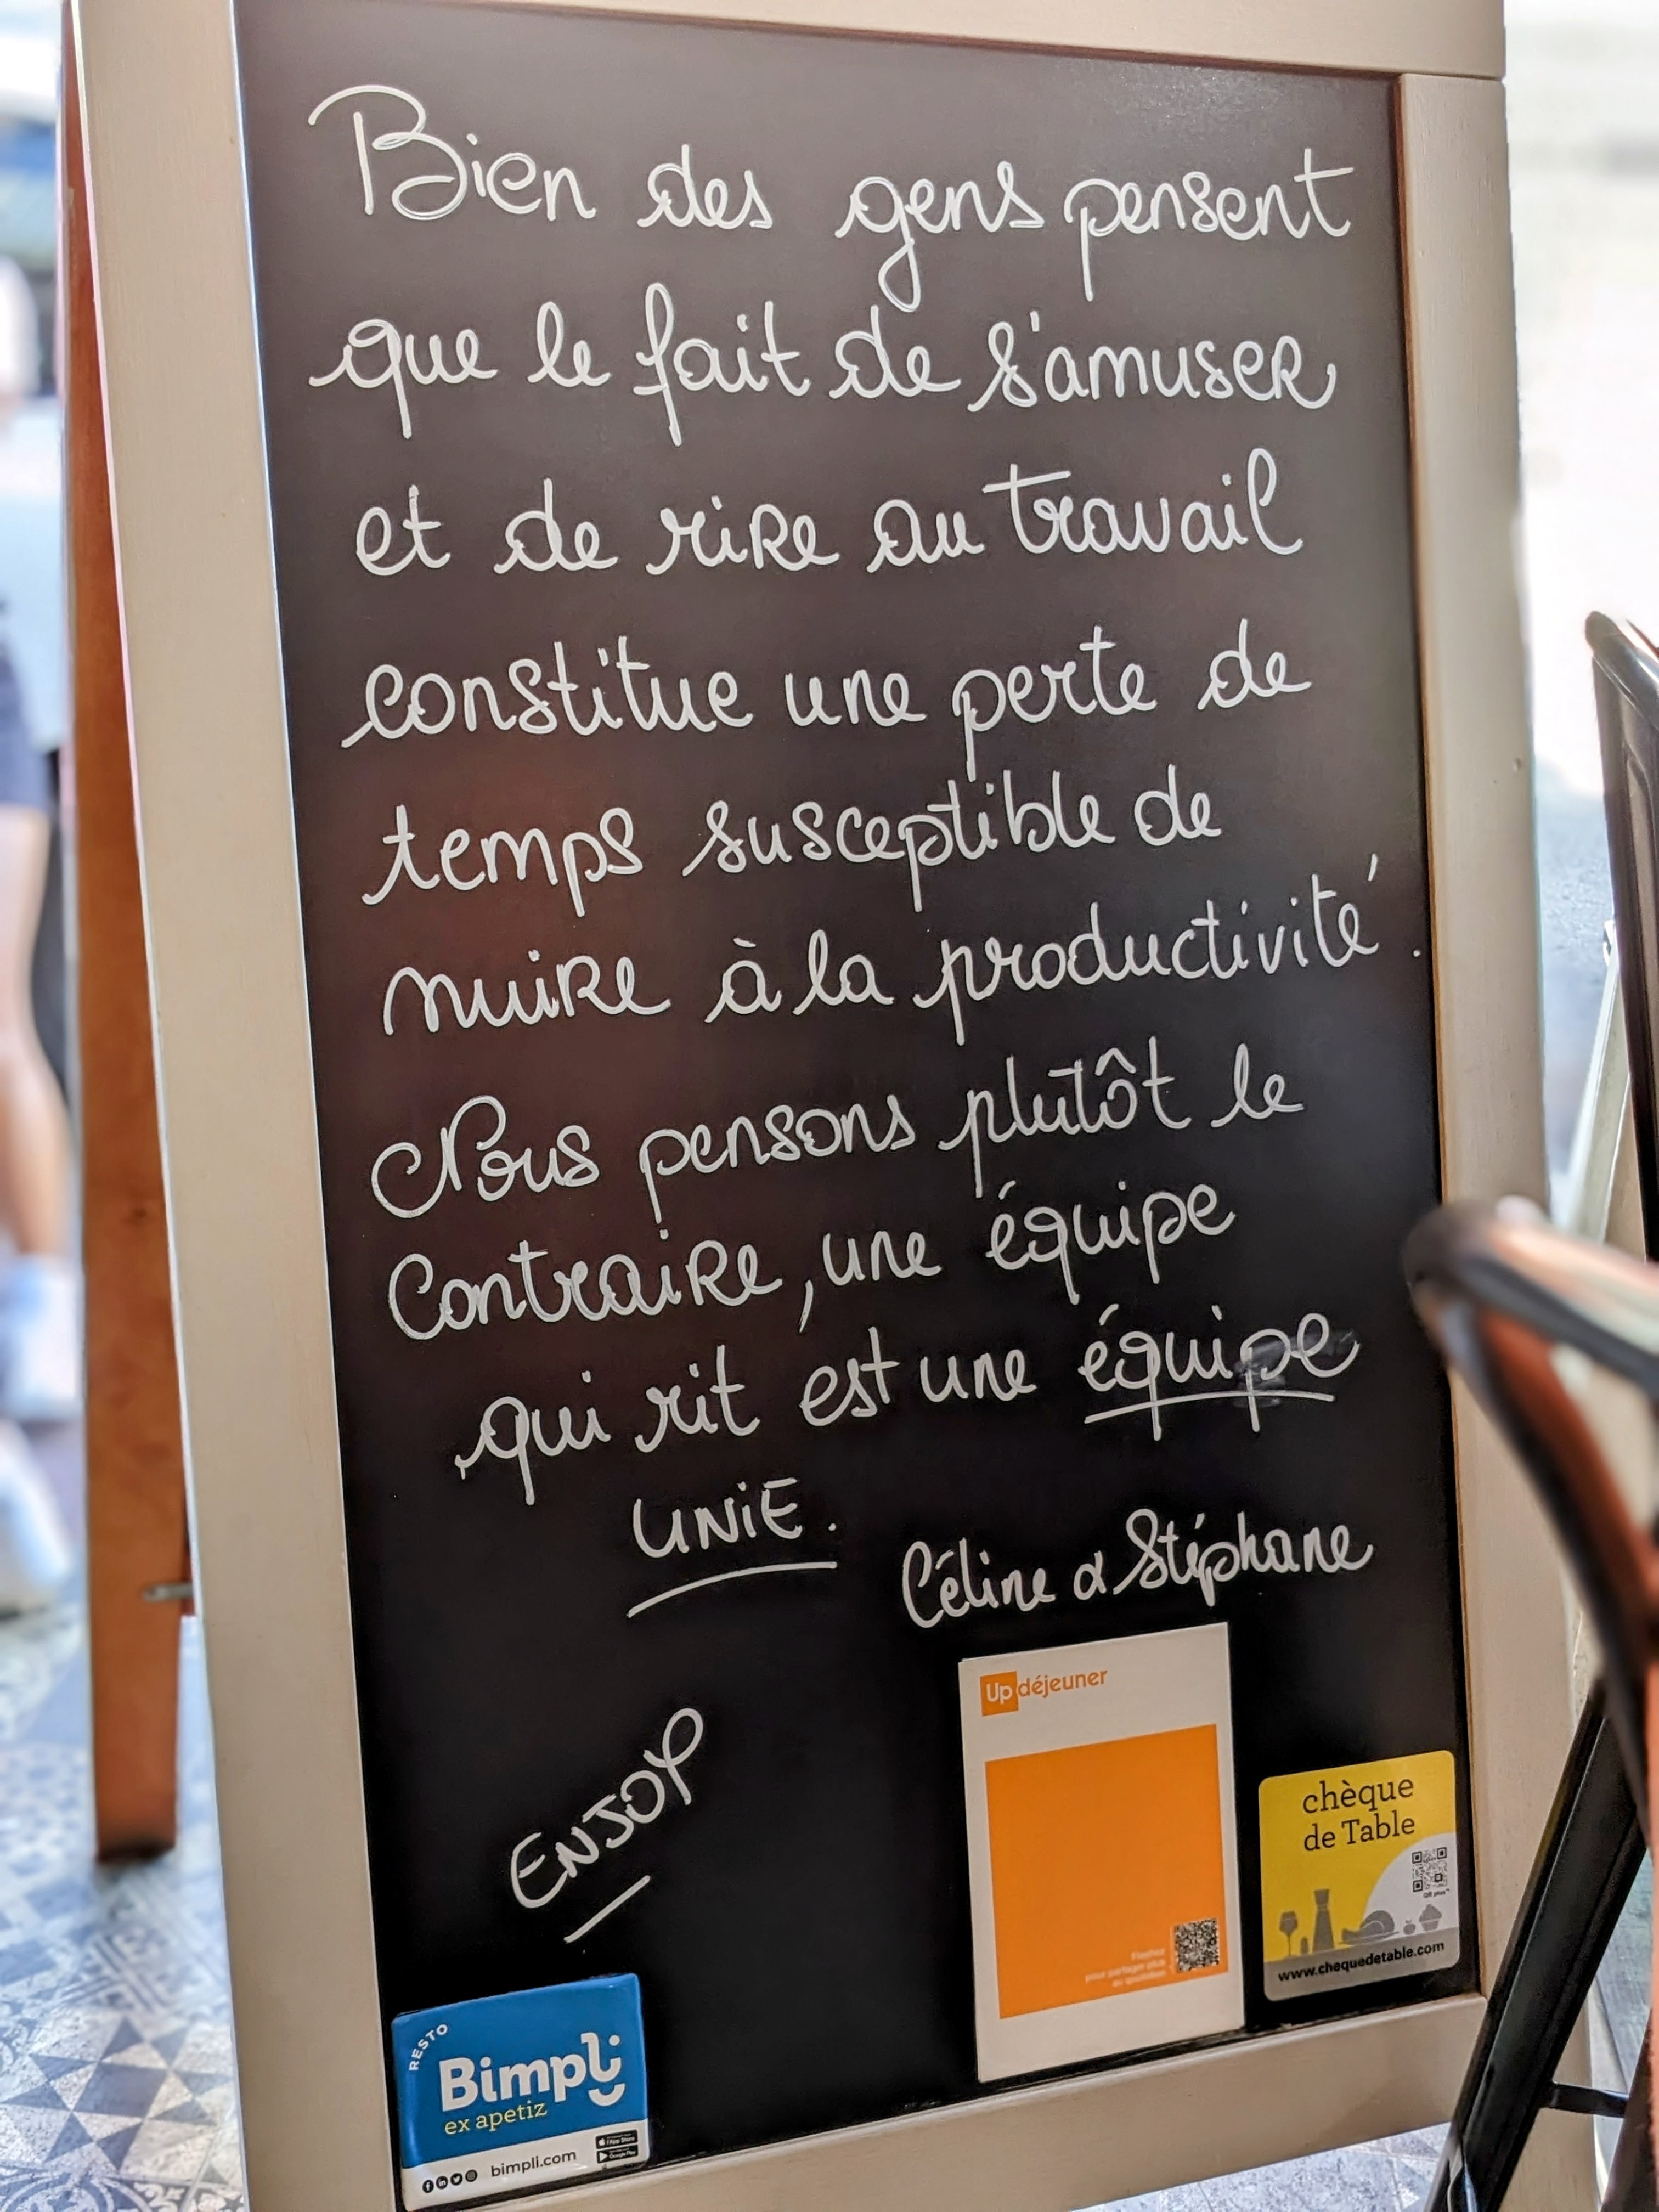 Bien des gens pensent
que le fait de s'amuser
et de rire au travail
constitue une perte de
temps susceptible de
nuire à la productivité.
Nous pensons plutôt le
Contraire, une équipe
qui rit est une équipe
UNiE.
Céline & Stéphane
ENJOY
Up déjeuner
Flashez
pour partager plus
au quotidien
chèque
de Table
QR plus
www.chequedetable.com
RESTO
Bimpli
ex apetiz
bimpli.com
App Store
Google Play